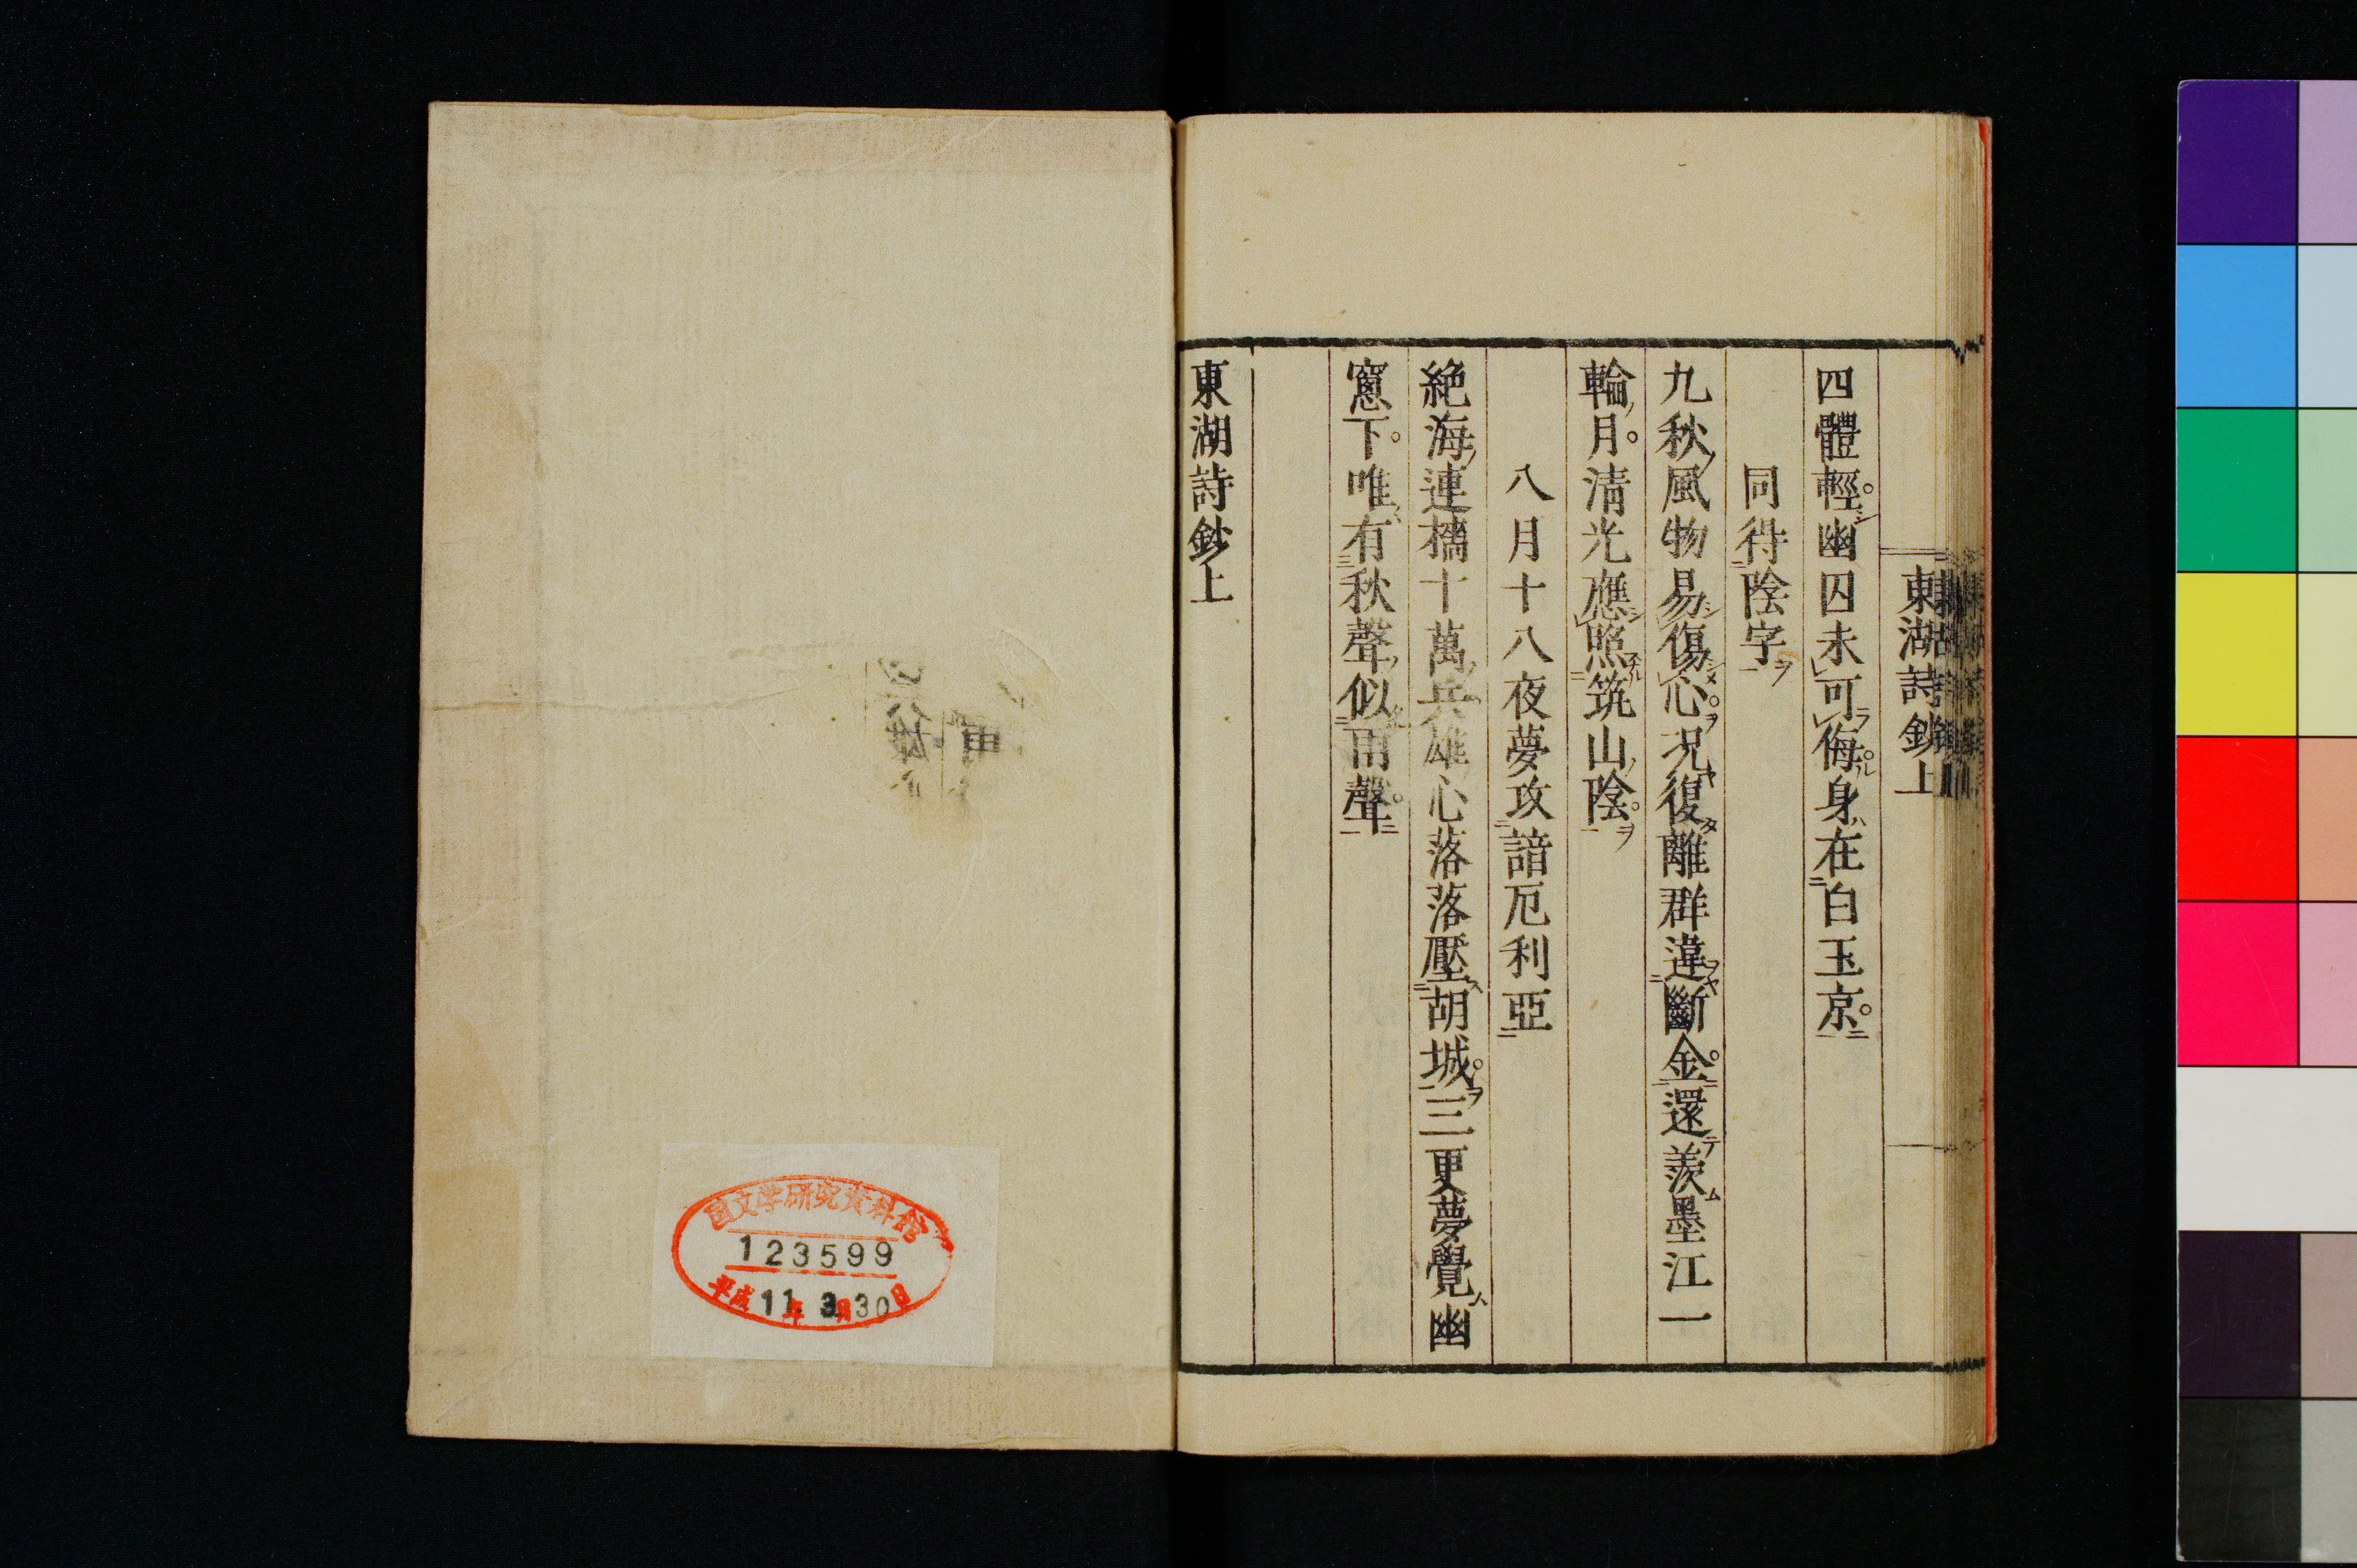 東湖詩鈔上
四體輕幽囚未可侮身在白玉京
同得陰字
九秋風物易傷心况復離群違斷金還羨墨江一
輪月清光應照筑山陰
八月十八夜夢攻諳厄利亞
絶海連檣十萬兵雄心落落壓胡城三更夢覺幽
窻下唯有秋聲似雨聲
東湖詩鈔上
国文学研究資料館
123599
平成11年3月30日